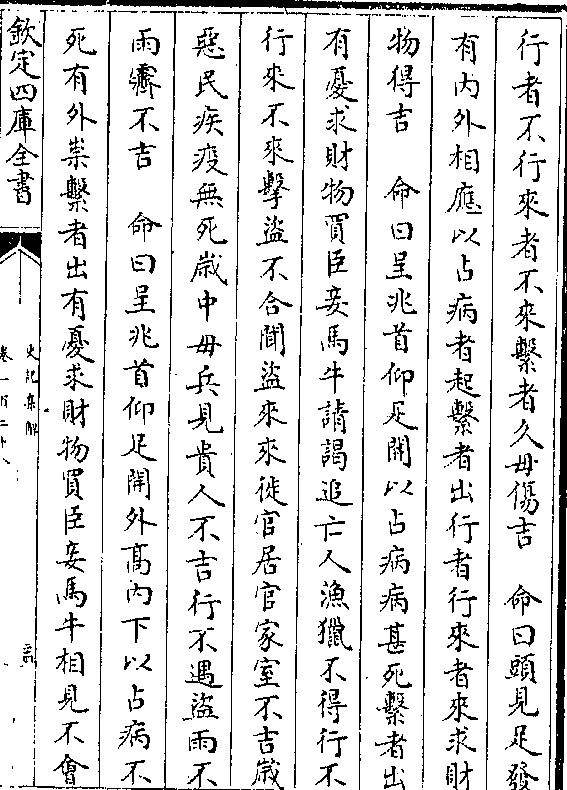 行者不行來者不來繫者久毋傷吉　命曰頭見足發
有内外相應以占病者起繫者出行者行來者來求財
物得吉　命曰呈兆首仰足開以占病病甚死繫者出
有憂求財物買臣妾馬牛請謁追亡人漁獵不得行不
行來不來擊盜不合聞盜來來徙官居官家室不吉歲
惡民疾疫無死歲中毋兵見貴人不吉行不遇盜雨不
雨霽不吉　命曰呈兆首仰足開外髙内下以占病不
死有外祟繫者出有憂求財物買臣妾馬牛相見不會
欽定四庫全書
史記集解
卷一百二十八